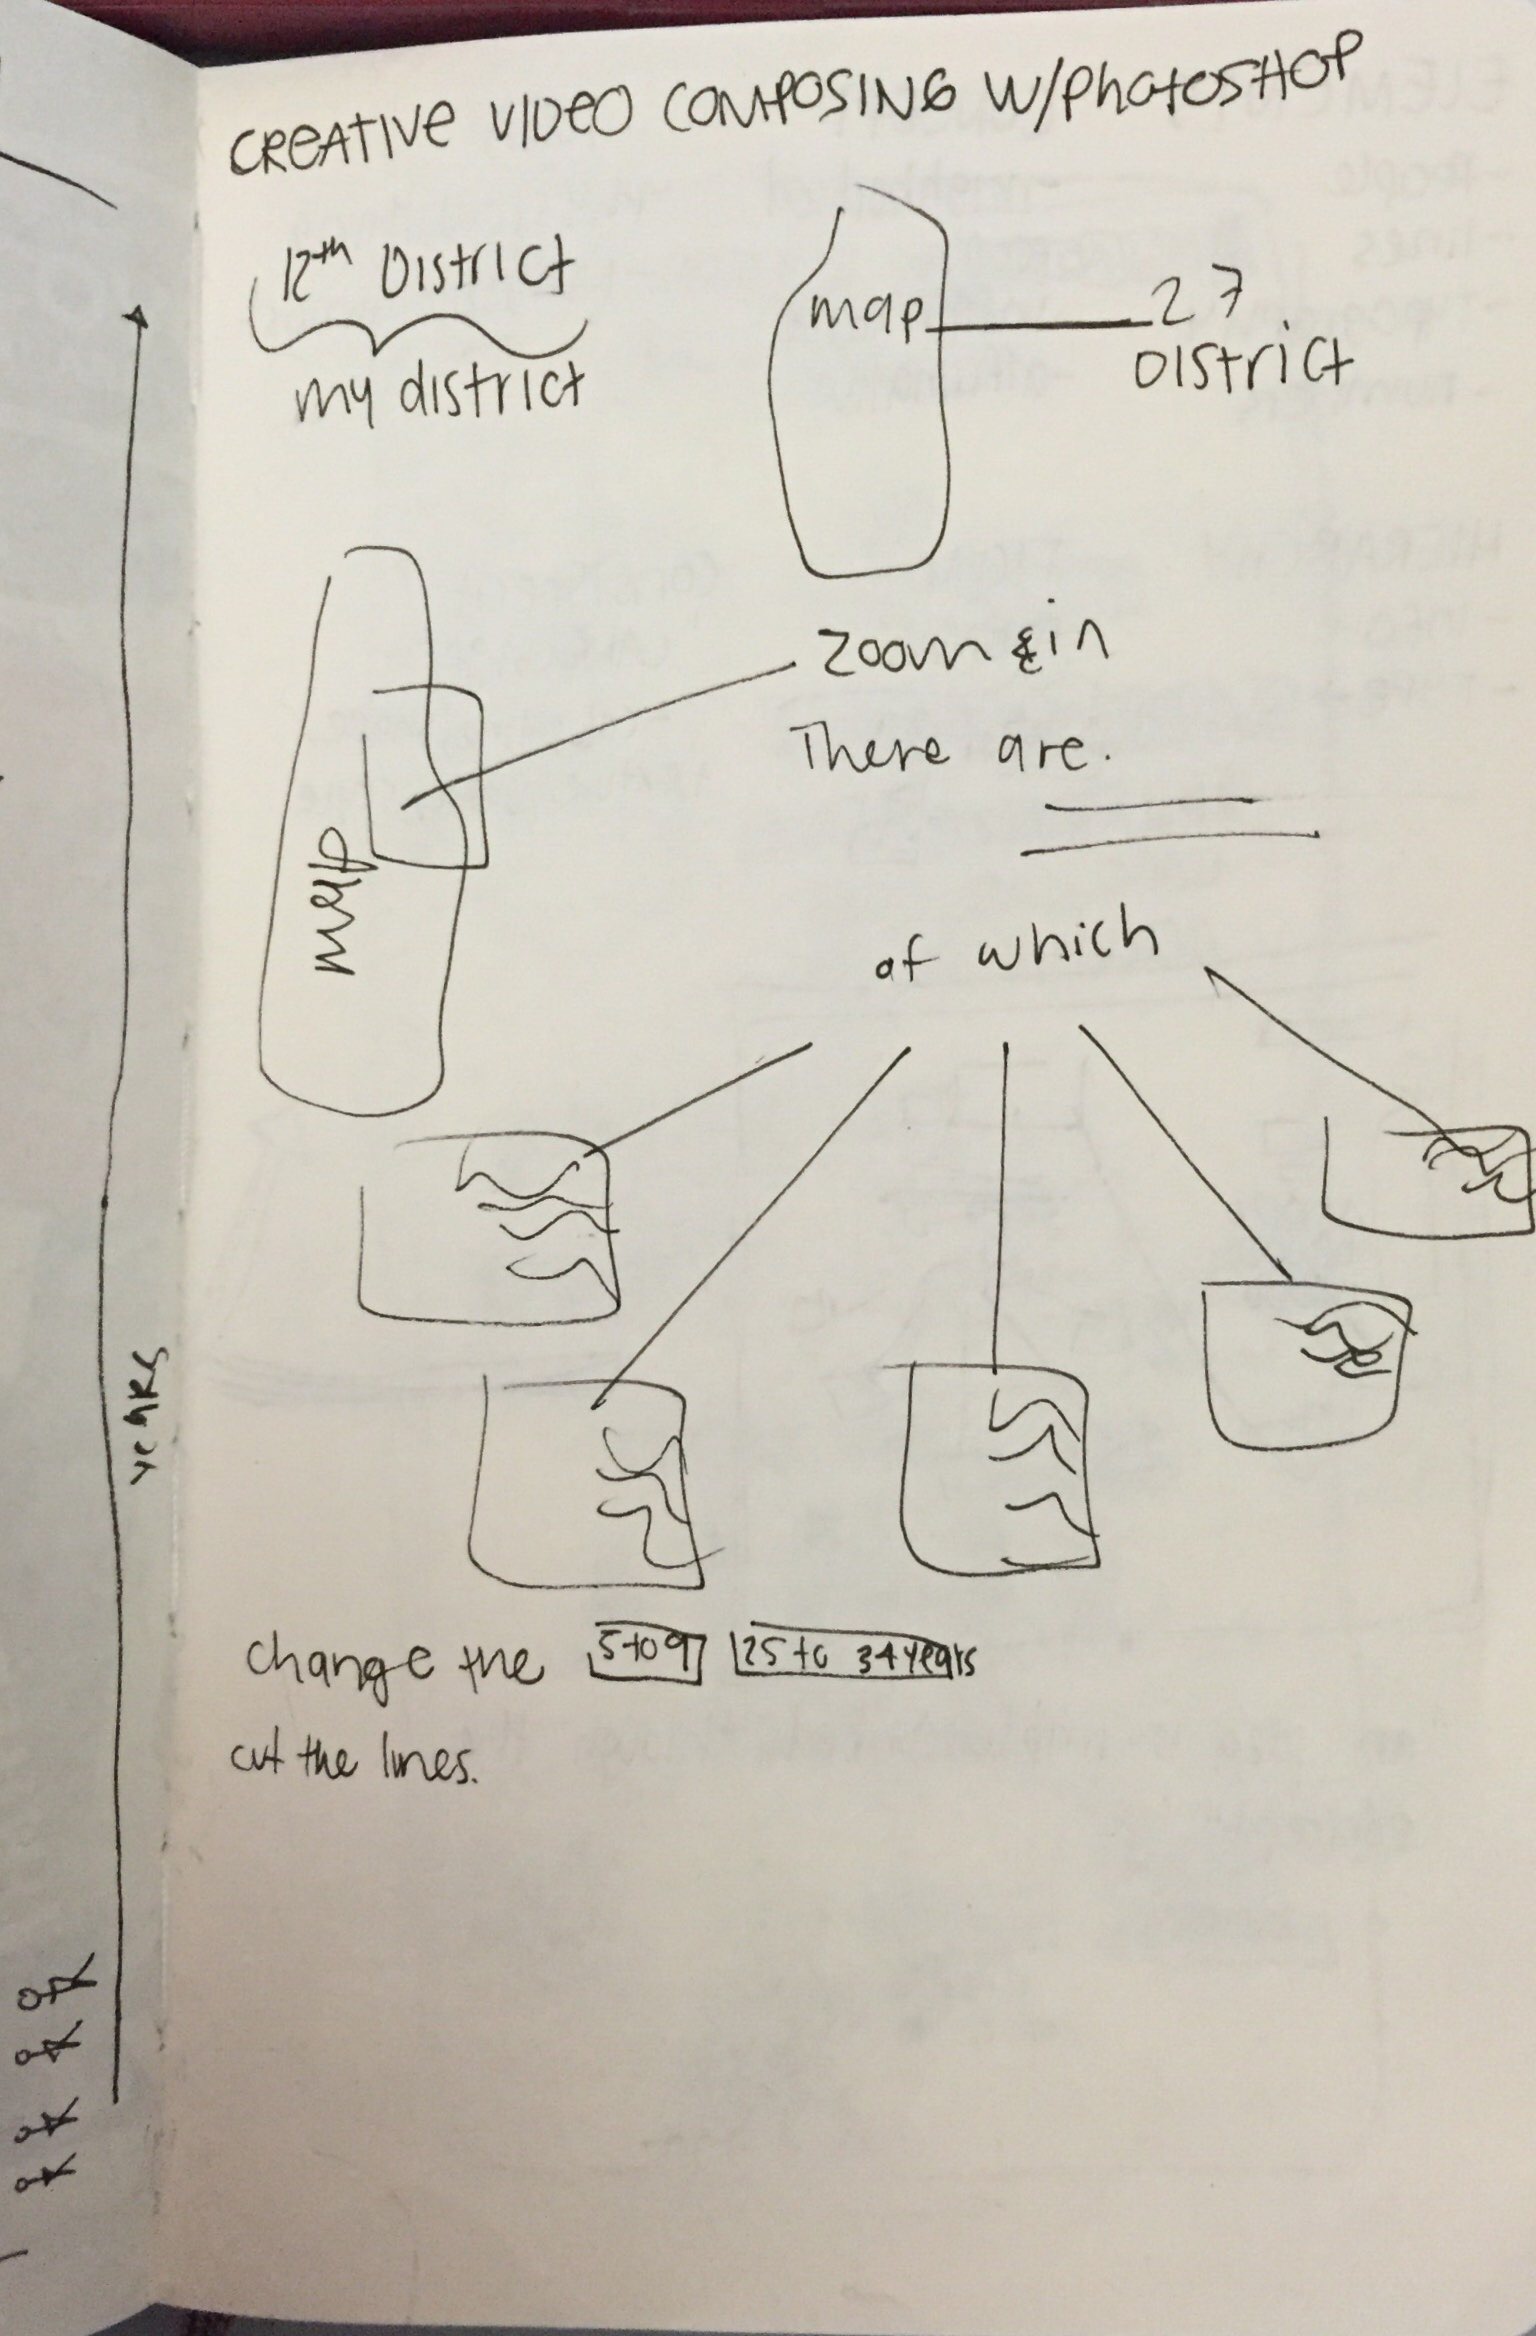 CREATIVE VIDEO COMPOSING W/PHOTOSHOP
12th DISTRICT
my district
map
27
DISTRICT
zoom in
There are.
map
of which
years
change the 5 to 9 25 to 34 years
cut the lines.